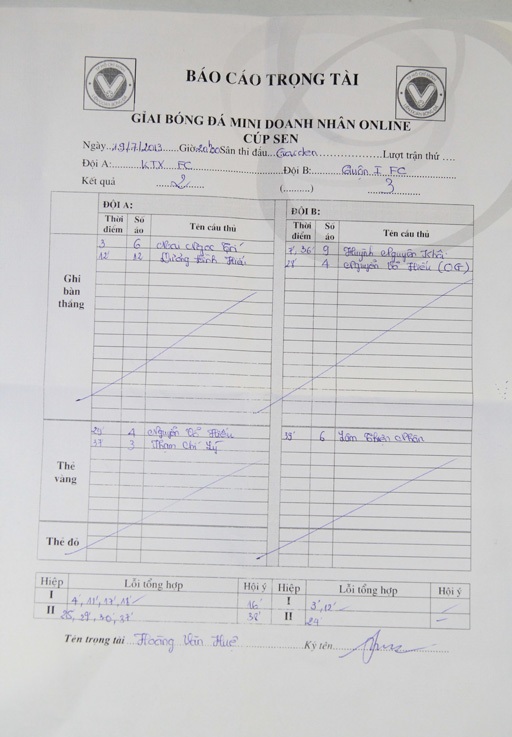 BÁO CÁO TRỌNG TÀI
GIẢI BÓNG ĐÁ MINI DOANH NHÂN ONLINE
CÚP SEN
Ngày 29/7/2013 Giờ 20h30 Sân thi đấu Garden Lượt trận thứ ....
Đội A: KTX FC Đội B: Quận I FC
Kết quả 2 (..........) 3
ĐỘI A: ĐỘI B:
Thời điểm Số áo Tên cầu thủ Thời điểm Số áo Tên cầu thủ
Ghi bàn thắng
3 6 Ngọc 7', 36' 9 Huỳnh Nguyên Khôi
12' 12 Dương Đình Hiếu 4 Nguyễn Hiếu (OG)
Thẻ vàng
29' 4 Nguyễn Hiếu 39' 6 Lâm Thiện Nhân
17' 3 Phạm Chí Lý
Thẻ đỏ
Hiệp Lỗi tổng hợp Hội ý Hiệp Lỗi tổng hợp Hội ý
I 4', 11', 17', 18' 16' I 3', 12'
II 25, 29', 30', 37' 38' II 29'
Tên trọng tài Hoàng Văn Huệ Ký tên